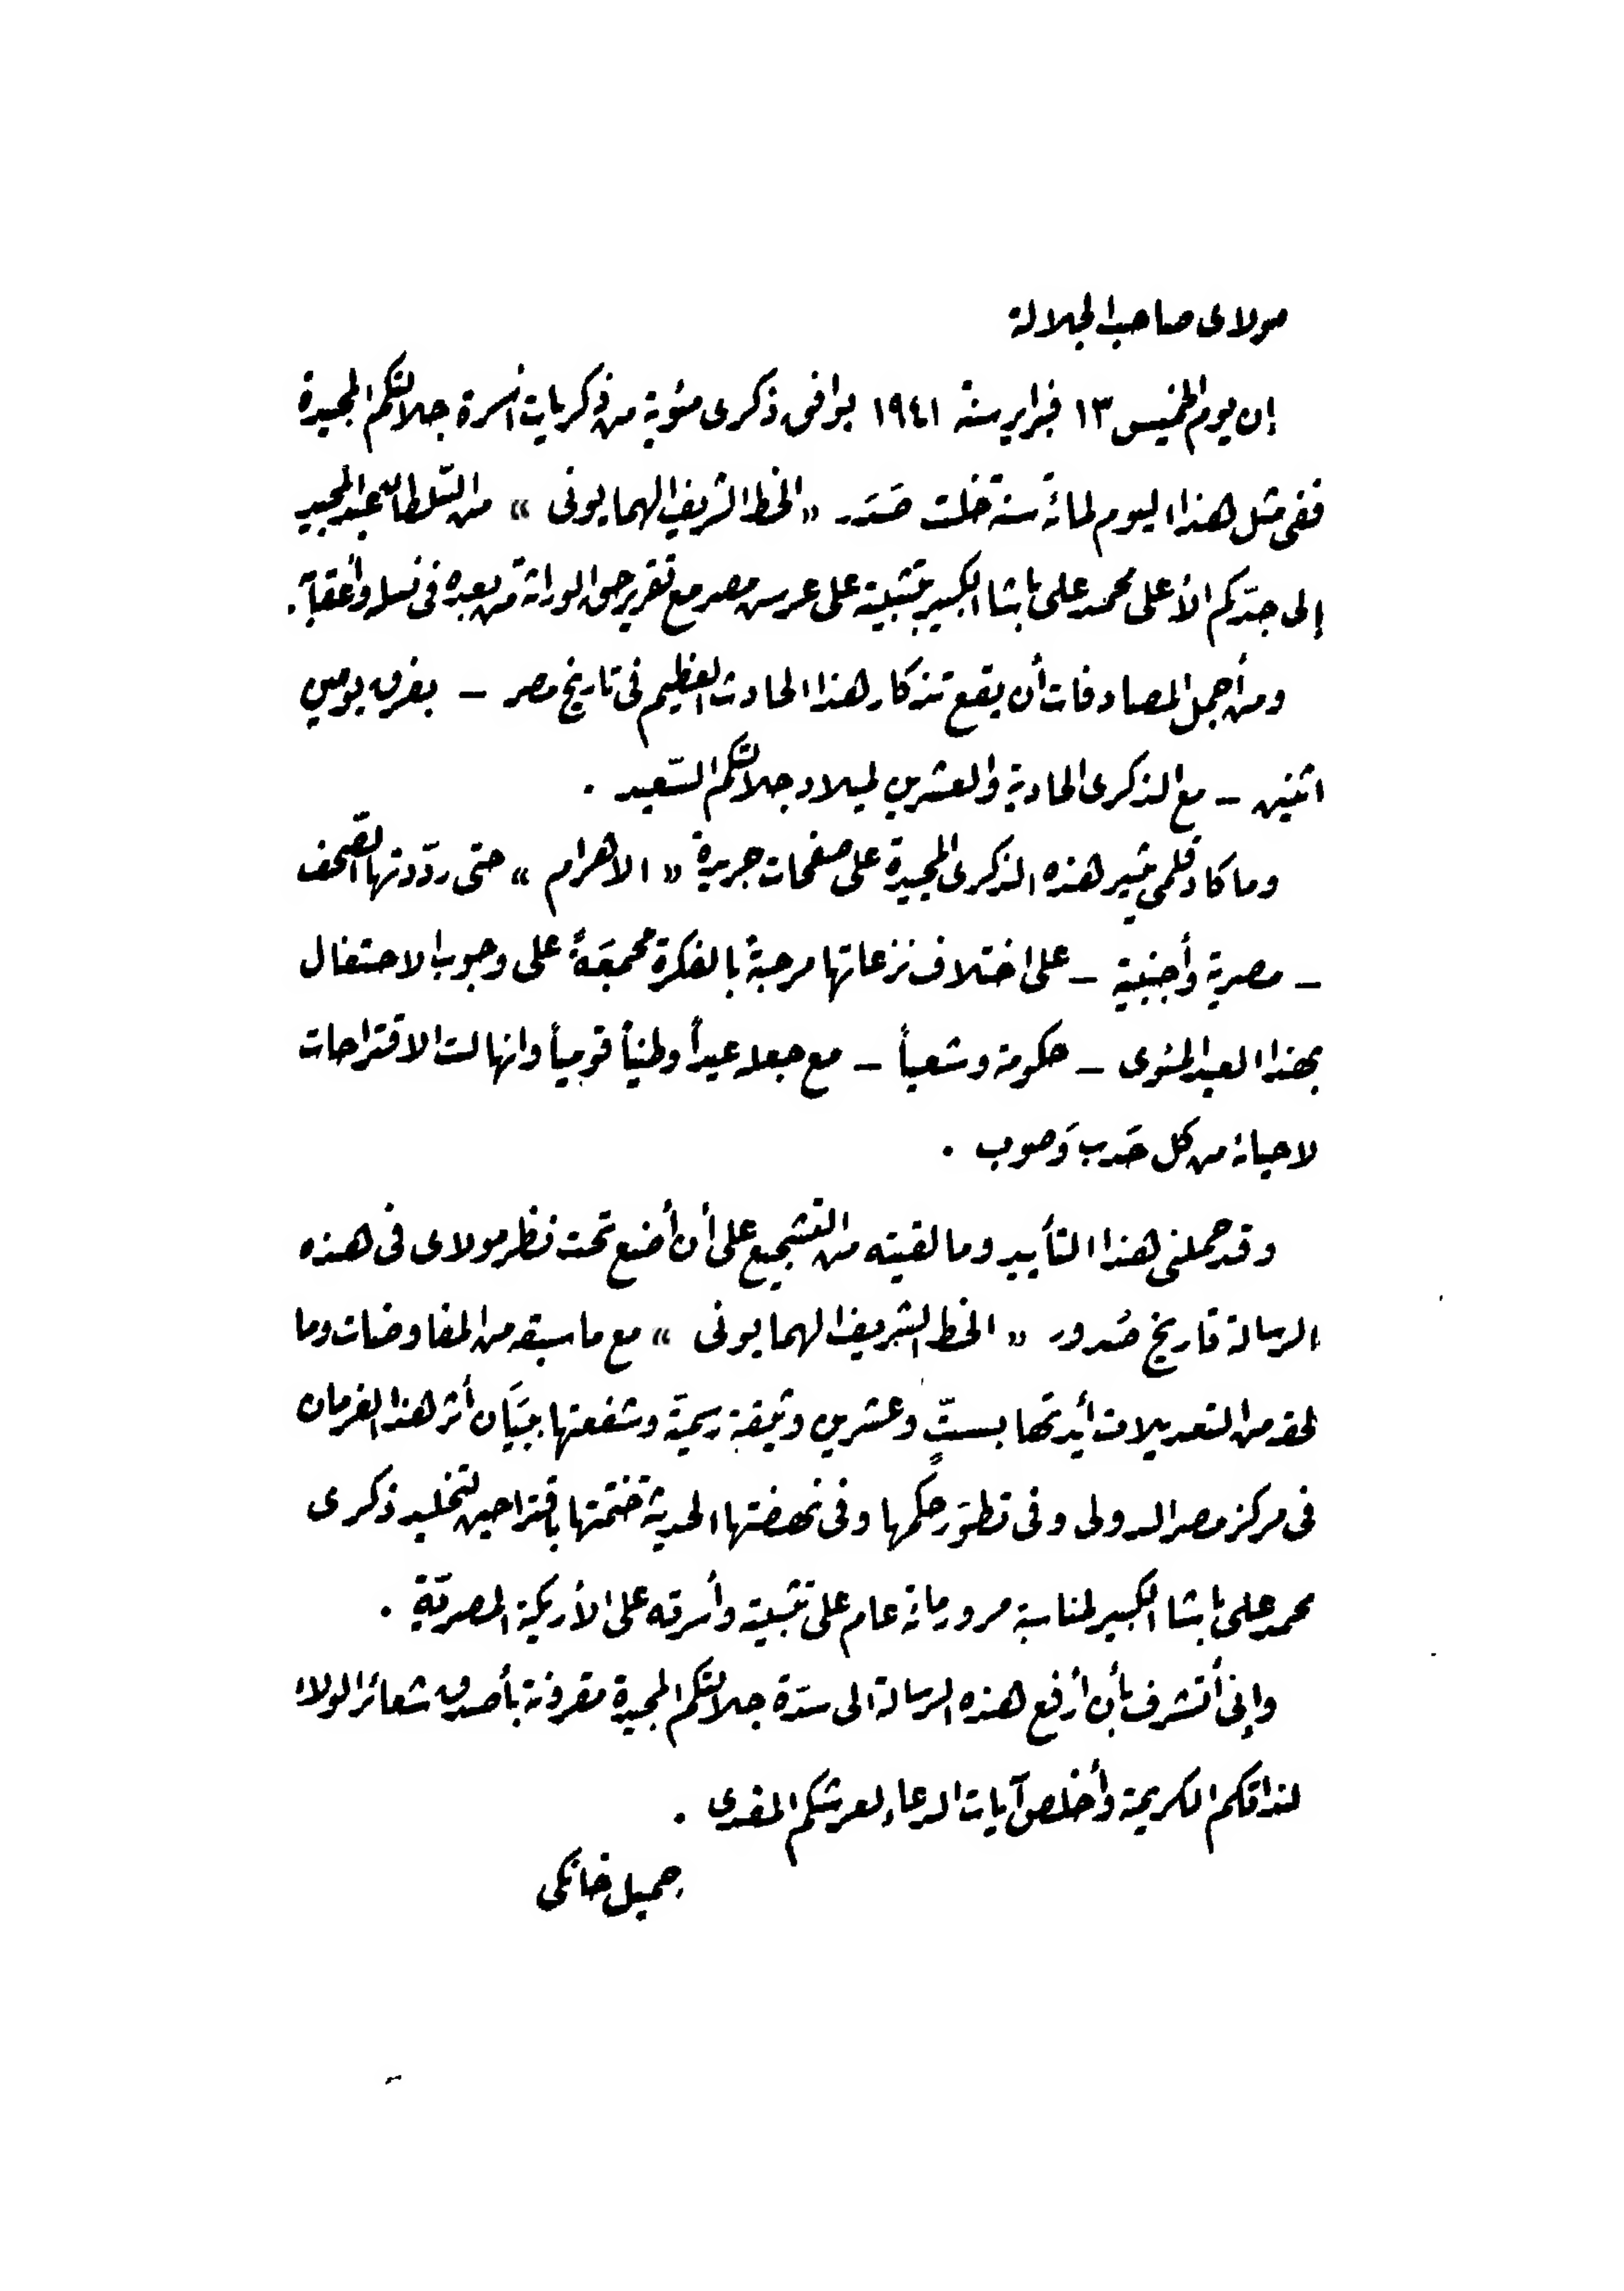 مولاى صاحب الجلالة
إن يوم الخميس ١٣ فبراير سنة ١٩٤١ يوافق ذكرى مئوية من ذكريات أسرة جلالتكم المجيدة
ففى مثل هذا اليوم لمائة سنة خلت صَدَر «الخط الشريف الهمايونى» من السّلطان عبد المجيد
إلى جدّكم الأعلى محمد على باشا الكبير بتثبيته على عرس مصر مع تقرير حق الوراثة من بعده فى نسله وأعقابه.
ومن أجمل المصادفات أن يقع تذكار هذا الحادث العظيم فى تاريخ مصر – بفرق يومين
اثنين – مع الذكرى الحادية والعشرين لميلاد جلالتكم السّعيد .
وما كاد قلمى يثير هذه الذكرى المجيدة على صفحات جريدة «الاهرام» حتى ردّدتها الصّحف
– مصرية وأجنبية – على اختلاف نزعاتها مرحبةً بالفكرة مجمِعَةً على وجوب الاحتفال
بهذا العيد المئوى – حكومة وشعباً – مع جعله عيداً وطنياً قومياً وانهالت الاقتراحات
لاحيائه من كل حَدب وَصوب .
وقد حملنى هذا التأييد وما لقيته من التشجيع على أن أضع تحت نظر مولاى فى هذه
الرسالة تاريخ صُدور «الخط الشريف الهمايونى» مع ما سبقه من المفاوضات وما
لحقه من التعديلات أيدتها بستٍّ وعشرين وثيقة رسميّة وشفعتها ببَيَان أثر هذا الفرمان
فى مركز مصر الدولى وفى تطوّر حكمها وفى نهضتها الحديثة ختمتها باقتراحين لتخليد ذكرى
محمد على باشا الكبير لمناسبة مرور مائة عام على تثبيته وأسرته على الأريكة المصريّة .
وإنى أتشرف بأن أرفع هذه الرسالة الى سدّة جلالتكم المجيدة مقرونة بأصدق شعائر الولاء
لذاتكم الكريمة وأخلص آيات الدعاء لعرشكم المفدى .
جميل خانكى